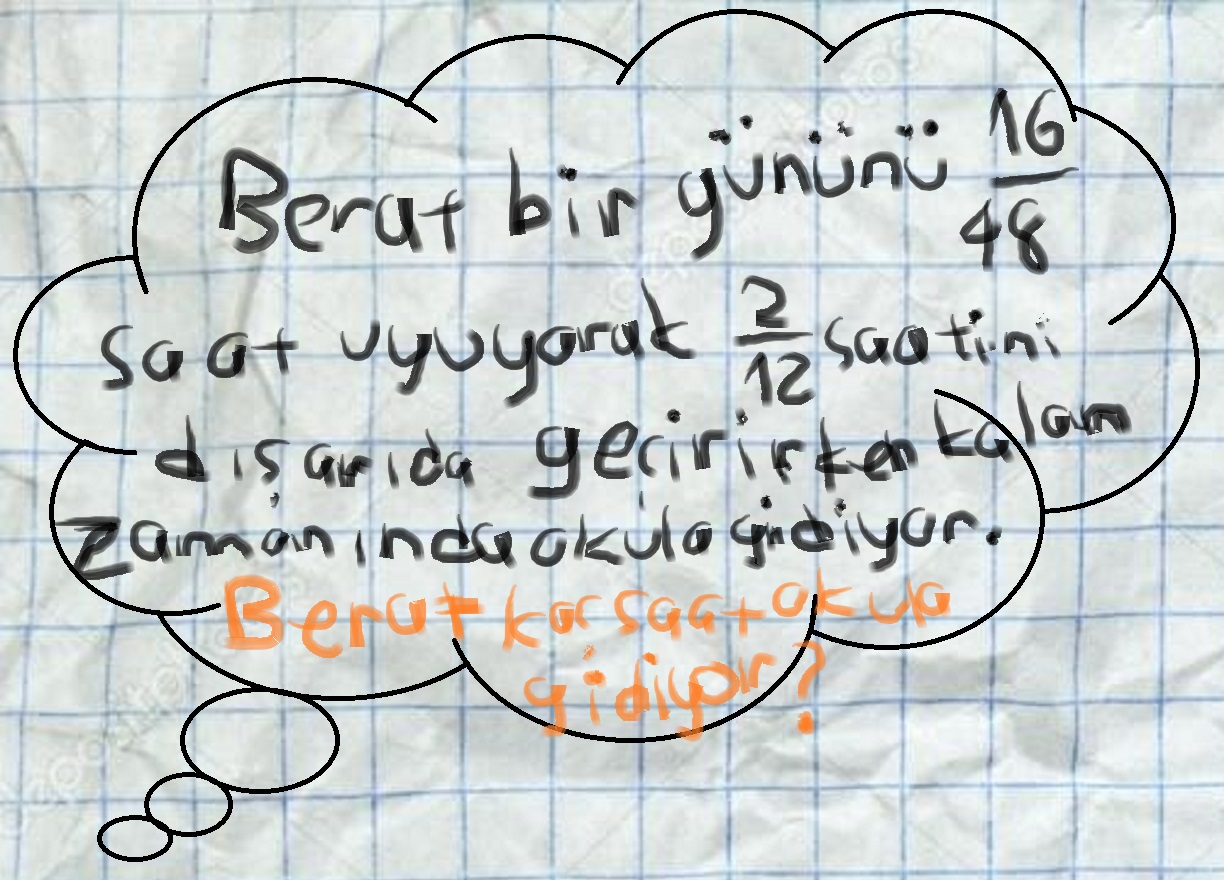 Berat bir gününü 16/48
saat uyuyarak 2/12 saatini
dışarıda geçirirken kalan
zamanında okula gidiyor.
Berat kaç saat okula
gidiyor?